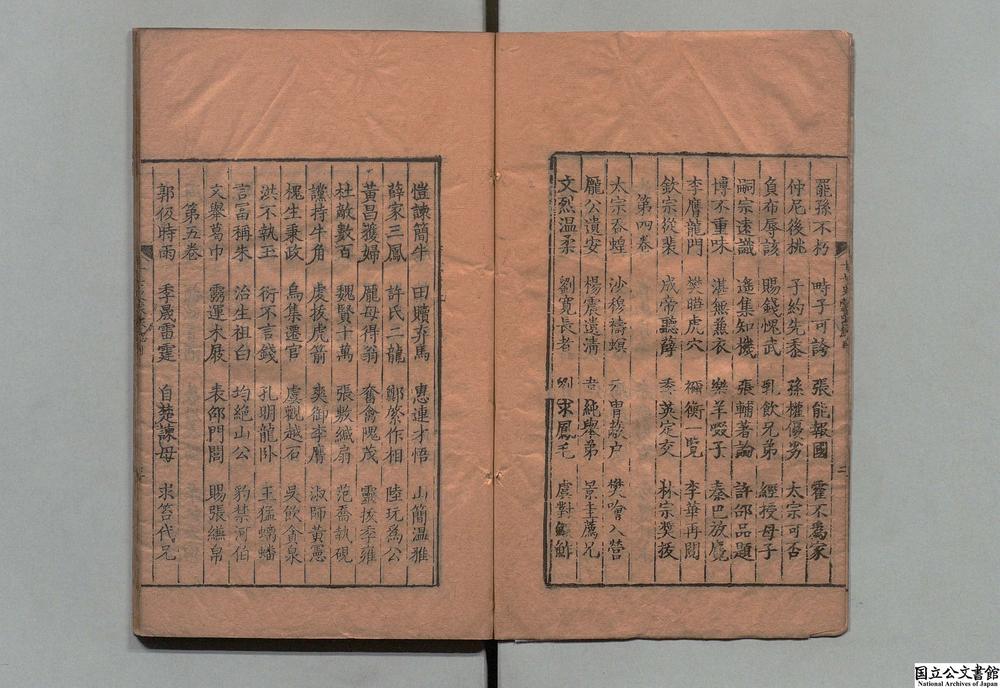 罷孫不朽　時子可誇　張能報國　霍不為家
仲尼後桃　子約先黍　孫權傷劣　太宗可否
負布辱該　賜錢愧武　乳飲兄弟　經授母子
嗣宗遠識　進集知機　張輔著論　許邵品題
博不重味　湛無兼衣　樂羊啜子　秦巴放麑
李膺龍門　樊曄虎穴　禰衡一覧　李華再閱
欽宗從裴　成帝聽薛　季英定交　林宗奬拔
第四卷
太宗吞蝗　沙穆禱螟　冑蔽户　樊噲入營
龐公遺安　楊震遺清　袁純舉弟　景圭薦兄
文烈温柔　劉寛長者　劉求鳳毛　虞對鮆鮓
愷諫簡牛　田贖弃馬　惠連才悟　山簡温雅
薛家三鳳　許氏二龍　鄭綮作相　陸玩為公
黄昌獲婦　龐母得翁　奮禽隗茂　靈拔季雍
杜敵數百　魏賢十萬　張敷緘扇　范喬執硯
讜持牛角　處拔虎箭　爽御李膺　淑師黄憲
槐生秉政　烏集遷官　虞觀越石　吳飲貪泉
洪不執玉　衍不言錢　孔明龍卧　王猛螭蟠
言冨稱朱　治生祖白　均絶山公　豹禁河伯
文舉葛巾　靈運木屐　表邵門閭　賜張縑帛
第五卷
郭伋時雨　季晟雷霆　自楚諫母　求笞代兄
国立公文書館
National Archives of Japan